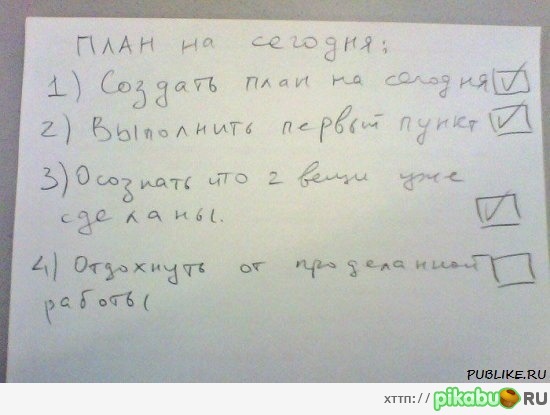 ПЛАН на сегодня:
1) Создать план на сегодня
2) Выполнить первый пункт
3) Осознать что 2 вещи уже
сделаны.
4) Отдохнуть от проделанной
работы
PUBLIKE.RU
хттп:// pikabu.RU